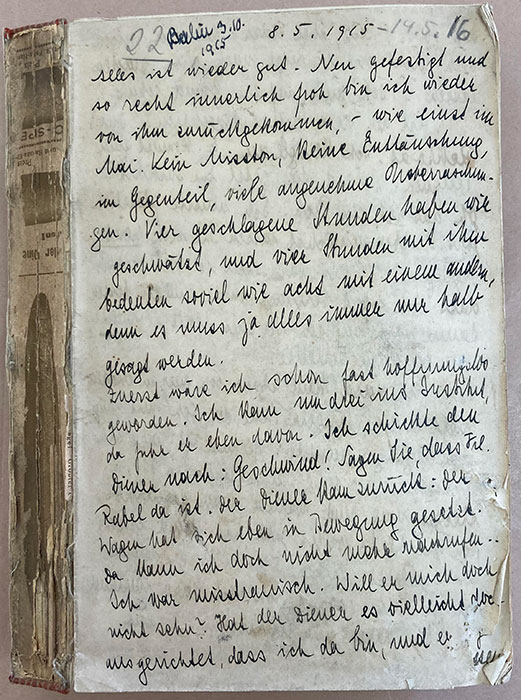 22 Berlin 3.10. 1915 8.5.1915-14.5.16
Alles ist wieder gut. Neu gefestigt und
so recht innerlich froh bin ich wieder
von ihm zurückgekommen, – wie einst im
Mai. Kein Misston, keine Enttäuschung,
im Gegenteil, viele angenehme Ueberraschun-
gen. Vier geschlagene Stunden haben wir
geschwätzt, und vier Stunden mit ihm
bedeuten soviel wie acht mit einem andern,
denn es muss ja alles immer nur halb
gesagt werden.
Zuerst wäre ich schon fast hoffnungslos
geworden. Ich kam um drei ins Institut,
da fuhr er eben davon. Ich schickte den
Diener nach: Geschwind! Sagen Sie, dass Frl.
Rabel da ist. Der Diener kam zurück: der
Wagen hat sich eben in Bewegung gesetzt.
Da kann ich doch nicht mehr nachrufen..
Ich war misstrauisch. Will er mich doch
nicht sehn? Hat der Diener es vielleicht doch
ausgerichtet, dass ich da bin, und er